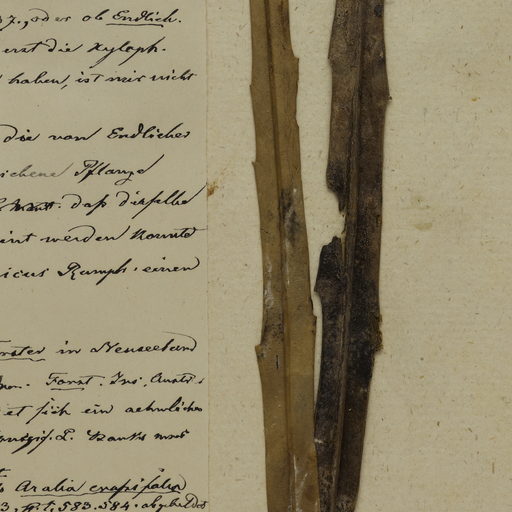 37., oder ob Endlich.
erst die Xyloph.
haben, ist mir nicht
die von Endlicher
ichene Pflanze
daß dieselbe
eint werden konnte
icus Rumph. einen
orster in Neuseeland
Forst. Ins. Austr.
et sich ein aehnliches
L. Banks
Aralia crassifolia
3, tt. 583. 584. abgebildet